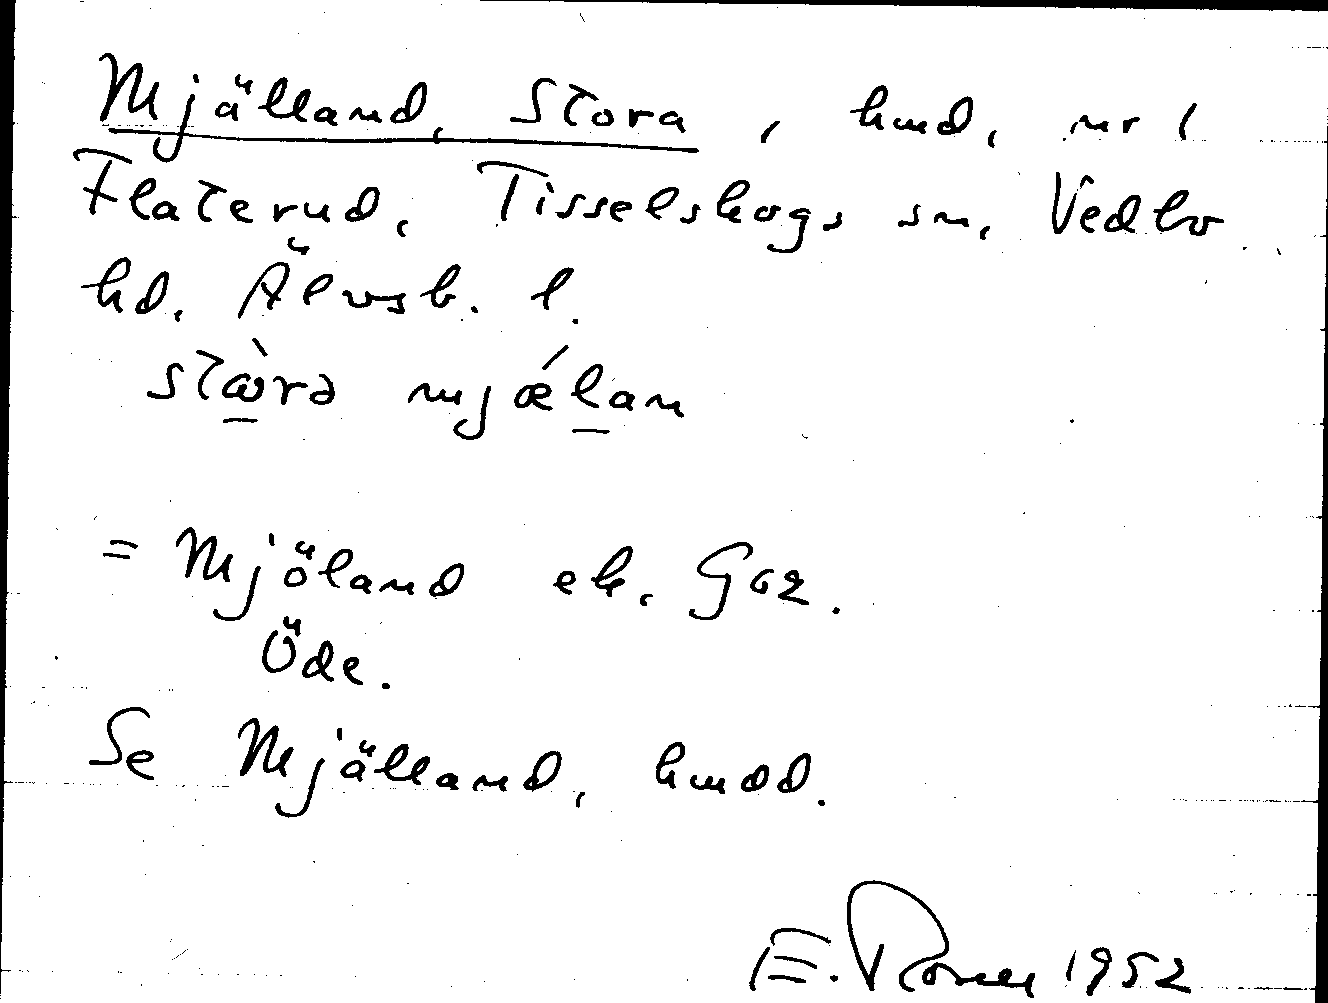 Mjälland, Stora, hmd, nr 1
Flaterud, Tisselskogs sn, Vedbo
hd, Älvsb. l.
stὼrə mjǽlan
= Mjöland ek. G62.
Öde.
Se Mjälland, hmdd.
E. 1952